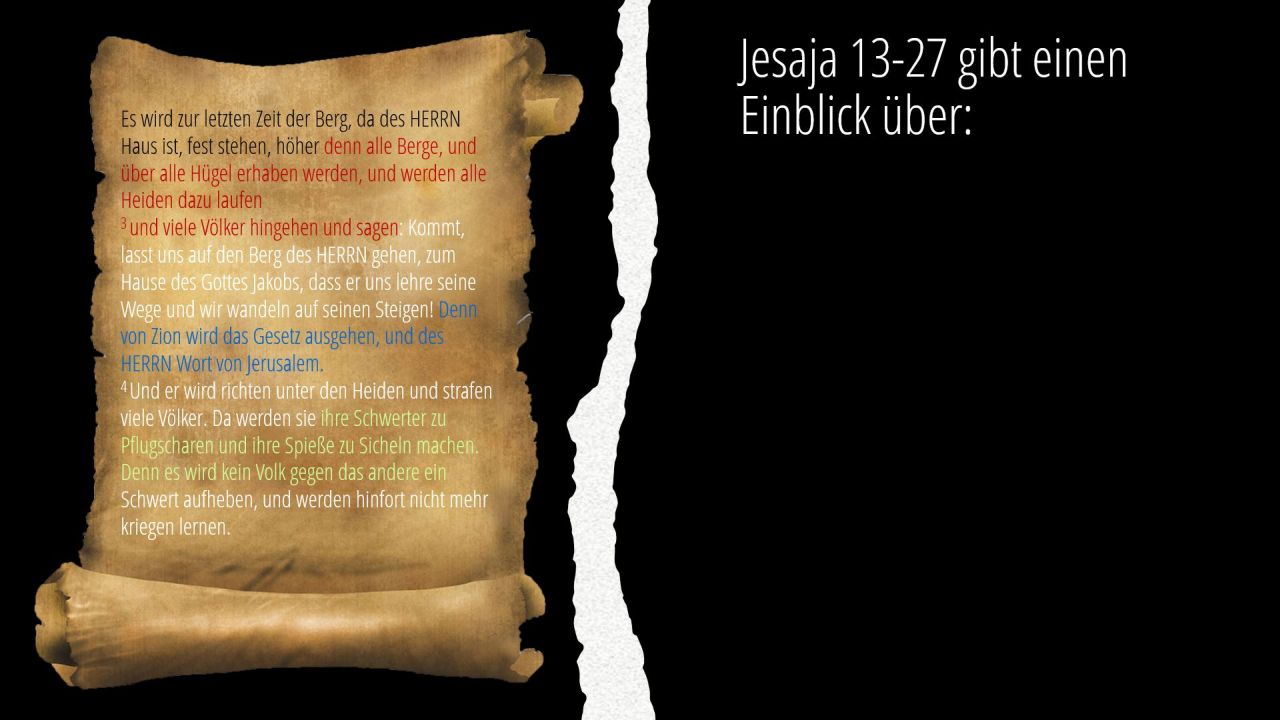 Es wird zur letzten Zeit der Berg, da des HERRN
Haus ist, fest stehen, höher denn alle Berge, und
über alle Hügel erhaben werden, und werden alle
Heiden dazu laufen
3 und viele Völker hingehen und sagen: Kommt,
lasst uns auf den Berg des HERRN gehen, zum
Hause des Gottes Jakobs, dass er uns lehre seine
Wege und wir wandeln auf seinen Steigen! Denn
von Zion wird das Gesetz ausgehen, und des
HERRN Wort von Jerusalem.
4 Und er wird richten unter den Heiden und strafen
viele Völker. Da werden sie ihre Schwerter zu
Pflugscharen und ihre Spieße zu Sicheln machen.
Denn es wird kein Volk gegen das andere ein
Schwert aufheben, und werden hinfort nicht mehr
kriegen lernen.
Jesaja 13-27 gibt einen
Einblick über: